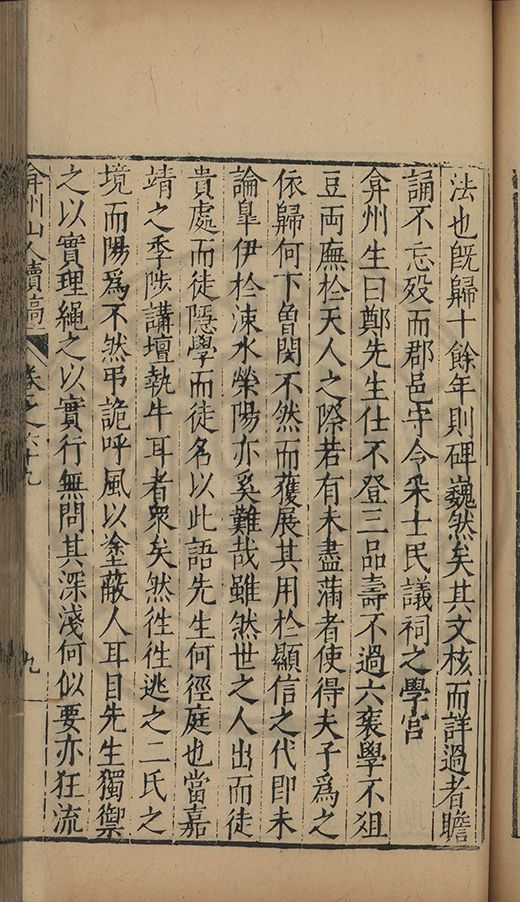 法也既歸十餘年則碑巍然矣其文核而詳過者瞻
誦不忘歿而郡邑守令采士民議祠之學宮
弇州生曰鄭先生仕不登三品壽不過六袠學不俎
豆両廡於天人之際若有未盡蒲者使得夫子為之
依歸何下魯閔不然而獲展其用於顯信之代即未
論臯伊於涑水滎陽亦奚難哉雖然世之人出而徒
貴處而徒隱學而徒名以此語先生何徑庭也當嘉
靖之季陟講壇執牛耳者衆矣然徃徃逃之二氏之
境而陽爲不然弔詭呼風以塗蔽人耳目先生獨禦
之以實理繩之以實行無問其深淺何似要亦狂流
弇州山人續稿 卷之六十九 九